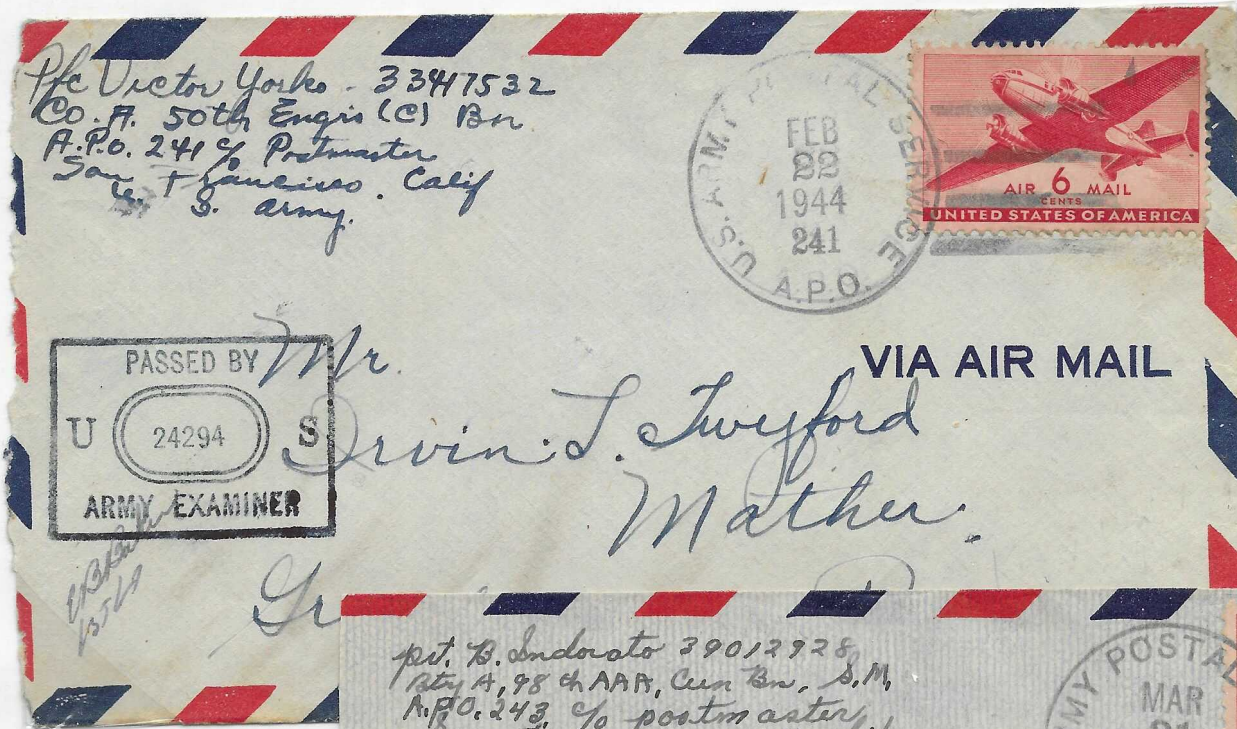 Pfc Victor Yorko - 33417532
Co. A. 50th Engrs (C) Bn
A.P.O. 241 c/o Postmaster
San Francisco. Calif
U. S. Army.
U.S. ARMY POSTAL SERVICE
FEB
22
1944
241
A.P.O.
AIR 6 MAIL
CENTS
UNITED STATES OF AMERICA
VIA AIR MAIL
PASSED BY
U 24294 S
ARMY EXAMINER
Mr.
Irvin L. Twyford
Mather.
Gr
pvt. B. Indorato 39012928
Bty A, 98th AAA, Gun Bn, S.M,
A.P.O. 243, c/o postmaster,
MY POSTAL
MAR